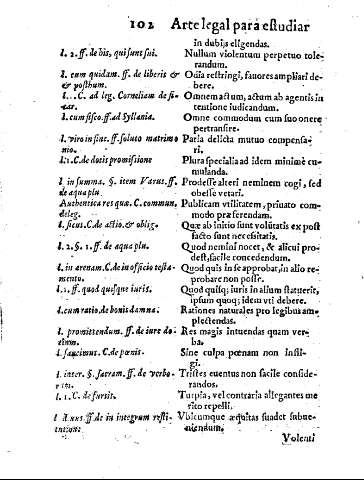 102 Arte legal para estudiar
in dubijs eligendas.
l. 2. ff. de his, qui sunt sui. Nullum violentum perpetuo tole-
randum.
l. cum quidam. ff. de liberis & Odia restringi, fauores ampliari de-
& posthum. bere.
l. . C. ad leg. Corneliam de si- Omnem actum, actum ab agentis in
car. tentione iudicandum.
l. cum fisco. ff. ad Syllania. Omne commodum cum suo onere
pertransire.
l. viro in fine. ff. soluto matrimo Paria delicta mutuo compensa-
nio. ri.
l. 1. C. de dotis promissione Plura specialia ad idem minime cu-
mulanda.
l in summa. §. item Varus. ff. Prodesse alteri neminem cogi, sed
de aqua plu. obesse vetari.
Authentica res quæ. C. commun, Publicam vtilitatem, priuato com-
deleg. modo præferendam.
l. sicut. C. de actio. & oblig. Quæ ab initio sunt volutatis ex post
facto sunt necessitatis.
l. 2. §. 1. ff. de aqua plu. Quod nemini nocet, & alicui pro-
dest, facile concedendum.
l. in arenam. C. de inofficio testa- Quod quis in se approbat, in alio re-
mento. probare non posse.
l. 1. ff. quod quisque iuris. Quod quisq; iuris in alium statuerit,
ipsum quoq; idem vti debere.
l. cum ratio. de bonis damna. Rationes naturales pro legibus am-
plectendas.
l. promittendum. ff. de iure do- Res magis intuendas quam ver-
tium. ba.
l. sancimus. C. de pœnis. Sine culpa pœnam non infli-
gi.
l. inter. §. sacram. ff. de verbo- Tristes euentus non facile conside-
rum. randos.
l. 1. C. de furtis. Turpia, vel contraria allegantes me
rito repelli.
ff. de in integrum resti- Vbicumque æquitas suadet subue-
tutione. niendum.
Volenti